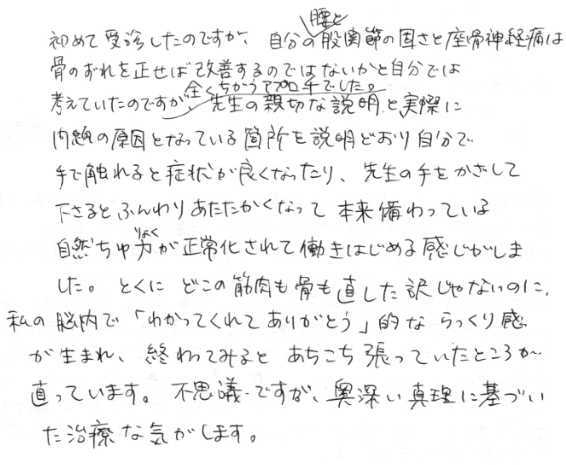 初めて受診したのですが、自分の腰と股関節の固さと座骨神経痛は
骨のずれを正せば改善するのではないかと自分では
考えていたのですが、全くちがうアプローチでした。先生の親切な説明と実際に
内面の原因となっている箇所を説明どおり自分で
手で触れると症状が良くなったり、先生の手をかざして
下さるとふんわりあたたかくなって本来備わっている
自然ちゆ力が正常化されて働きはじめる感じがしま
した。とくにどこの筋肉も骨も直した訳じゃないのに、
私の脳内で「わかってくれてありがとう」的ならっくり感
が生まれ、終わってみるとあちこち張っていたところが
直っています。不思議ですが、奥深い真理に基づい
た治療な気がします。